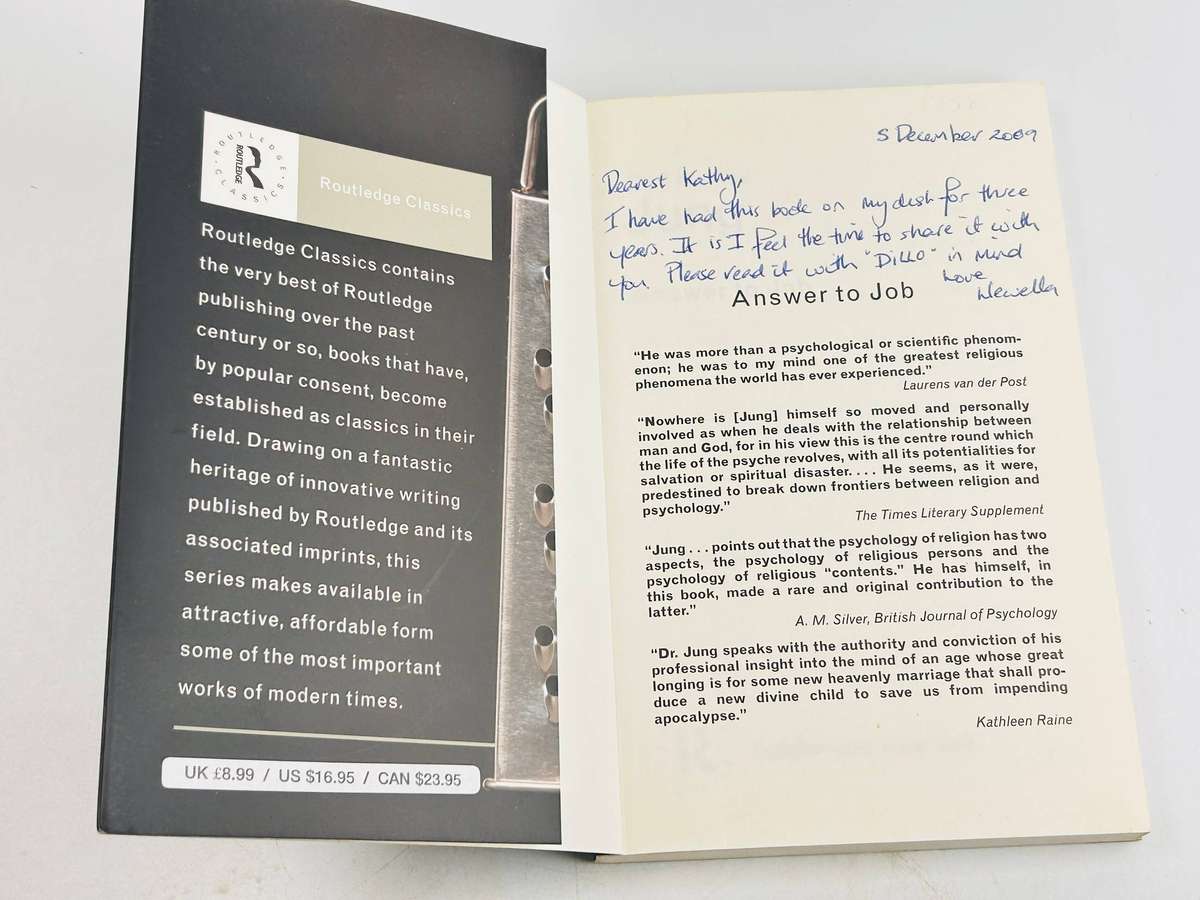 ROUTLEDGE CLASSICS
ROUTLEDGE
Routledge Classics
Routledge Classics contains
the very best of Routledge
publishing over the past
century or so, books that have,
by popular consent, become
established as classics in their
field. Drawing on a fantastic
heritage of innovative writing
published by Routledge and its
associated imprints, this
series makes available in
attractive, affordable form
some of the most important
works of modern times.
UK £8.99 / US $16.95 / CAN $23.95
5 December 2009
Dearest Kathy,
I have had this book on my desk for three
years. It is I feel the time to share it with
you. Please read it with "DILLO" in mind
Love
Llewella
Answer to Job
“He was more than a psychological or scientific phenom-
enon; he was to my mind one of the greatest religious
phenomena the world has ever experienced.”
Laurens van der Post
“Nowhere is [Jung] himself so moved and personally
involved as when he deals with the relationship between
man and God, for in his view this is the centre round which
the life of the psyche revolves, with all its potentialities for
salvation or spiritual disaster. . . . He seems, as it were,
predestined to break down frontiers between religion and
psychology.”
The Times Literary Supplement
“Jung . . . points out that the psychology of religion has two
aspects, the psychology of religious persons and the
psychology of religious “contents.” He has himself, in
this book, made a rare and original contribution to the
latter.”
A. M. Silver, British Journal of Psychology
“Dr. Jung speaks with the authority and conviction of his
professional insight into the mind of an age whose great
longing is for some new heavenly marriage that shall pro-
duce a new divine child to save us from impending
apocalypse.”
Kathleen Raine